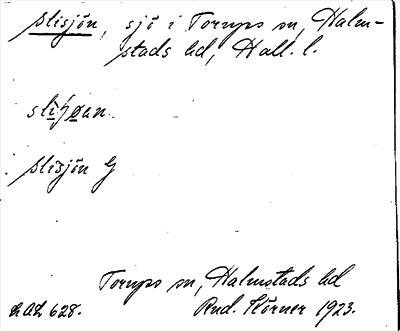 Slisjön, sjö i Torups sn, Halm-
stads hd, Hall. l.
Slisjön G
Torups sn, Halmstads hd
Rud. Körner 1923.